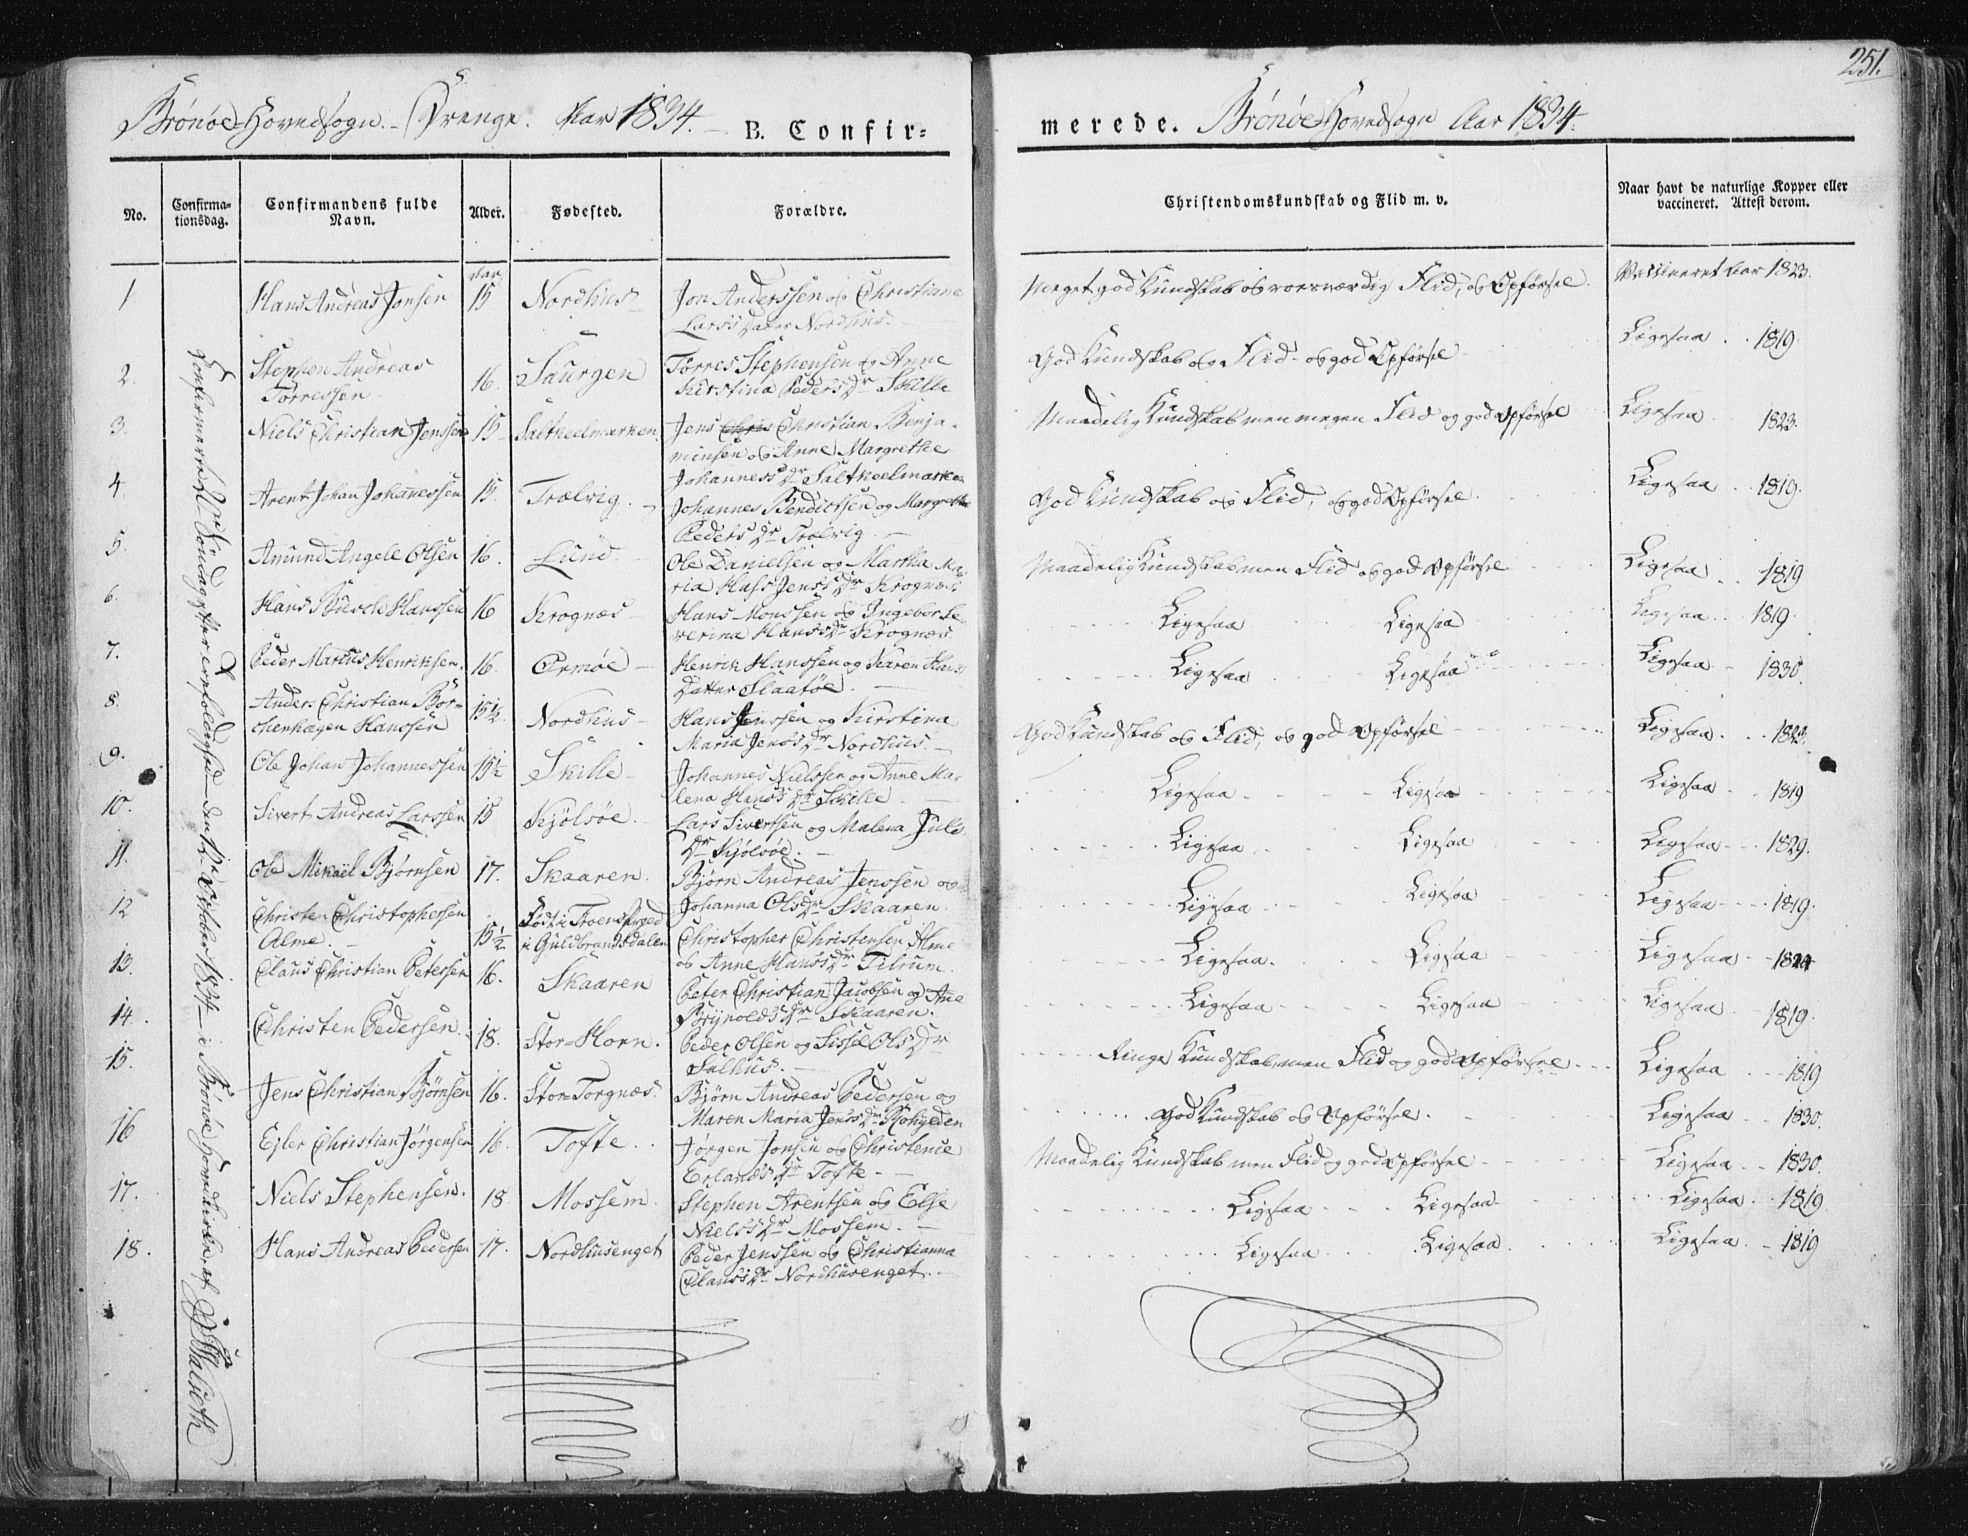 251.
Brönöe Hovedsogn. Drenge. Aar 1834. B. Confir-
merede. Brönöe Hovedsogn Aar 1834.
No.
Confirma-
tionsdag.
Confirmandens fulde
Navn.
Alder.
Fødested.
Forældre.
Christendomskundskab og Flid m. v.
Naar havt de naturlige Kopper eller
vaccineret. Attest derom.
Confirmerte Søndag efter den 12te October 1834 i Brönöe Hovedkirke af
1 Hans Andreas Jonsen Aar 15 Nordhus Jon Anderssen og Christiana
Lars's Datter Nordhus.
Meget god Kundskab og roesværdig Flid, og Opførsel. Vaccineret Aar 1823.
2. Stephen Andreas
Torressen 16. Saurgen Torres Stephensen og Anne
Kirstina Peders Dr Skille
God Kundskab og Flid og god Opførsel Ligesaa 1819.
3. Niels Christian Jenssen 15 Saltkeelmarken Jens Chris Christian Benja-
minsen og Anne Margrethe
Johanness Dr Saltkeelmarken
Maadelig Kundskab men megen Flid og god Opførsel Ligesaa 1823.
4. Arent Johan Johanessen 15. Trælvig Johannes Bendictsen og Margrethe
Peders Dr Trælvig
God Kundskab og Flid, og god Opførsel. Ligesaa 1819.
5. Amund Angell Olsen 16. Lund Ole Danielsen og Martha Ma-
ria Jens's Dr Krognæs
Maadelig Kundskab men Flid og god Opførsel Ligesaa 1819
6. Hans Busch Hanssen 16 Krognæs Hans Monssen og Ingebor Se-
verina Hans's Dr Krognæs
Ligesaa Ligesaa Ligesaa 1819.
7. Peder Marius Henriksen. 16. Ormöe Henrik Hanssen og Karen Hans
Datter Slaatøe
Ligesaa Ligesaa Ligesaa 1830.
8. Anders Christian Bor-
chenhagen Hanssen 15½ Nordhus Hans Jenssen og Kirstina
Maria Jens's Dr Nordhus.
God Kundskab og Flid, og god Opførsel Ligesaa 1823.
9. Ole Johan Johannessen 15½ Skille Johannes Nielssen og Anne Ma-
lena Hans's Dr Skille
Ligesaa Ligesaa Ligesaa 1819
10. Sivert Andreas Larssen 15 Kjölsöe. Lars Sivertsen og Malena Juls
Dr Kjölsöe.
Ligesaa Ligesaa Ligesaa 1829.
11. Ole Mikael Björnsen 17. Skaaren. Bjørn Andreas Jenssen og
Johanna Ols Dr Skaaren.
Ligesaa Ligesaa Ligesaa 1819.
12 Christen Christophersen
Alme. 15½ Född i Froens Præg.
i Guldbrandsdalen Christopher Christensen Alme
og Anne Hans's Dr Tilrum
Ligesaa. Ligesaa Ligesaa 1824
13. Claus Christian Petersen 16. Skaaren Peter Christian Jacobsen og Ane
Brynolds Dr Skaaren.
Ligesaa Ligesaa Ligesaa 1819.
14. Christen Pedersen. 18. Stor-Horn. Peder Olsen og Sissel Ols Dr
Salhus.
Ringe Kundskab, men Flid og god Opførsel Ligesaa 1819
15. Jens Christian Björnsen 16. Stor-Torgnæs. Bjørn Andreas Pedersen og
Maren Maria Jens's Dr
God Kundskab og Opførsel. Ligesaa 1830.
16 Ejler Christian Jörgensen 16. Tofte Jørgen Jonsen og Christence
Erlands Dr Tofte
Maadelig Kundskab men Flid og god Opførsel Ligesaa 1830.
17. Niels Stephensen. 18 Mossem. Stephen Arentsen og Else
Niels's Dr Mossem.
Ligesaa Ligesaa Ligesaa 1819.
18. Hans Andreas Pedersen 17. Nordhusenget Peder Jenssen og Christianna
Claus's Dr Nordhusenget.
Ligesaa Ligesaa Ligesaa 1819